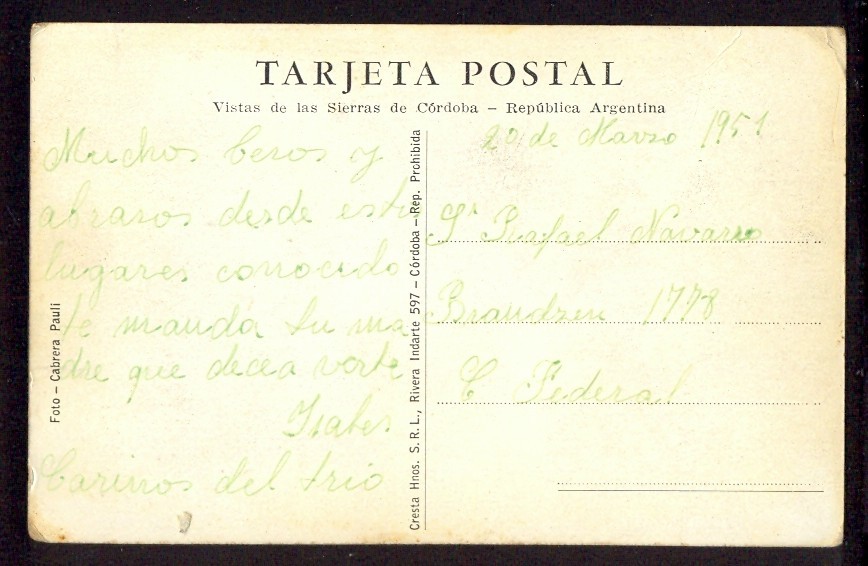 TARJETA POSTAL
Vistas de las Sierras de Córdoba – República Argentina
20 de Marzo 1951
Muchos besos y
abrasos desde estos
lugares conocido
te manda tu ma
dre que decea verte
Isabel
Carinos del trio
Sr Rafael Navarro
Brandzen 1778
C Federal
Foto – Cabrera Pauli
Cresta Hnos. S. R. L., Rivera Indarte 597 – Córdoba – Rep. Prohibida